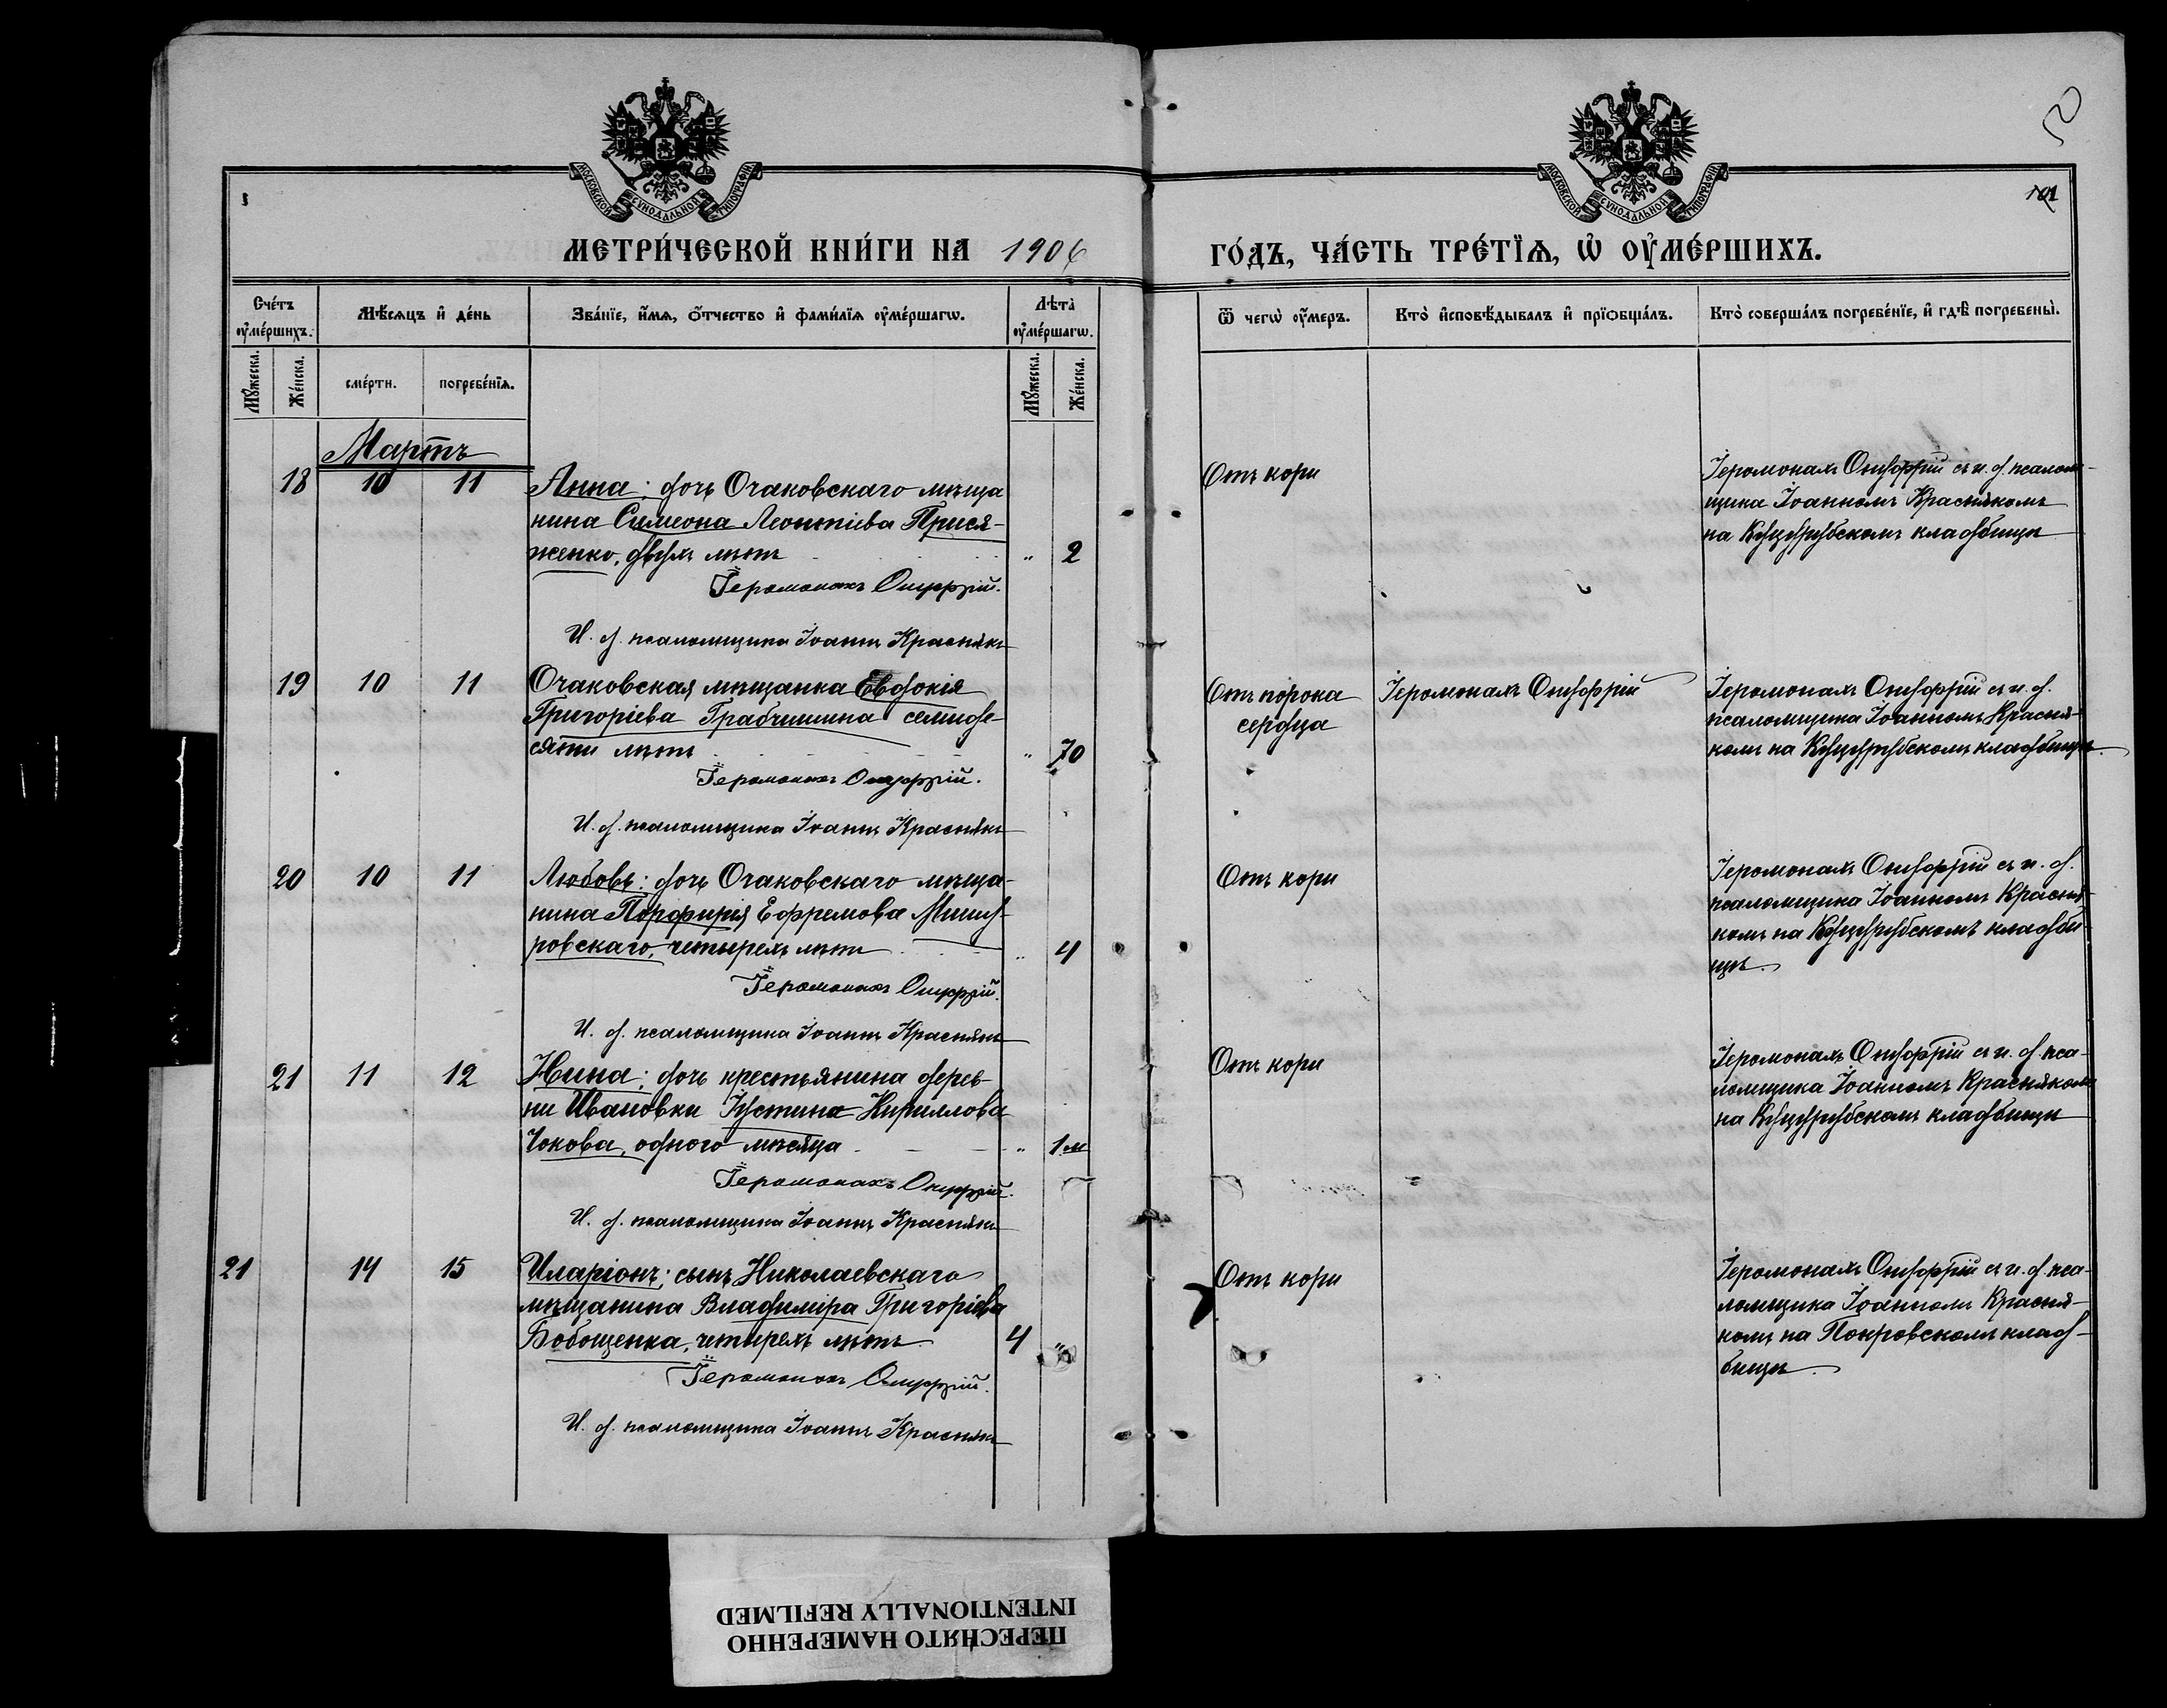 50
МОСКОВСКОЙ СУНОДАЛЬНОЙ ТИПОГРАФІИ.
МОСКОВСКОЙ СУНОДАЛЬНОЙ ТИПОГРАФІИ.
МЕТРИ́ЧЕСКОЙ КНИ́ГИ НА 1906
ГО́ДЪ, ЧА́СТЬ ТРЕ́ТЇѦ, Ѡ҆ ОУ҆МЕ́РШИХЪ.
Сче́тъ оу҆ме́ршихъ.
Мѣ́сѧцъ и҆ де́нь
Зва́нїе, и҆́мѧ, ѻ҆́тчество и҆ фами́лїѧ оу҆ме́ршагѡ.
Лѣ̀та оу҆ме́ршагѡ.
Ѿ чегѡ̀ оу҆́меръ.
Кто̀ и҆сповѣ́дывалъ и҆ прїѡбща́лъ.
Кто̀ соверша́лъ погребе́нїе, и҆ гдѣ̀ погребены̀.
Мꙋ́жеска.
Же́нска.
сме́рти.
погребе́нїѧ.
Мꙋ́жеска.
Же́нска.
Мартъ
18 10 11 Анна: дочь Очаковскаго мѣща
нина Симеона Леонтіева Прися-
женко, двухъ лѣтъ " 2
Іеромонахъ Онуфрій.
И. д. псаломщика Іоаннъ Краснякъ
Отъ кори
Іеромонахъ Онуфрій съ и. д. псалом-
щика Іоанномъ Краснякомъ
на Куцурубскомъ кладбищѣ
19 10 11 Очаковская мѣщанка Евдокія
Григоріева семиде-
сяти лѣтъ " 70
Іеромонахъ Онуфрій.
И. д. псаломщика Іоаннъ Краснякъ
Отъ порока
сердца
Іеромонахъ Онуфрій
Іеромонахъ Онуфрій съ и. д.
псаломщика Іоанномъ Красня-
комъ на Куцурубскомъ кладбищѣ.
20 10 11 Любовь: дочь Очаковскаго мѣща-
нина Порфирія Ефремова Мишу-
ровскаго, четырехъ лѣтъ " 4
Іеромонахъ Онуфрій.
И. д. псаломщика Іоаннъ Краснякъ
Отъ кори
Іеромонахъ Онуфрій съ и. д.
псаломщика Іоанномъ Красня-
комъ на Куцурубскомъ кладби-
щѣ.
21 11 12 Нина: дочь крестьянина дерев-
ни Ивановки Іустина Кириллова
Чокова, одного мѣсяца " 1 м
Іеромонахъ Онуфрій.
И. д. псаломщика Іоаннъ Краснякъ
Отъ кори
Іеромонахъ Онуфрій съ и. д. пса-
ломщика Іоанномъ Краснякомъ
на Куцурубскомъ кладбищѣ
21 14 15 Иларіонъ: сынъ Николаевскаго
мѣщанина Владиміра Григоріева
Бобощенка, четырехъ лѣтъ 4 "
Іеромонахъ Онуфрій.
И. д. псаломщика Іоаннъ Краснякъ
Отъ кори
Іеромонахъ Онуфрій съ и. д. пса-
ломщика Іоанномъ Красня-
комъ на Покровскомъ клад-
бищѣ.
ПЕРЕСНЯТО НАМЕРЕННО
INTENTIONALLY REFILMED